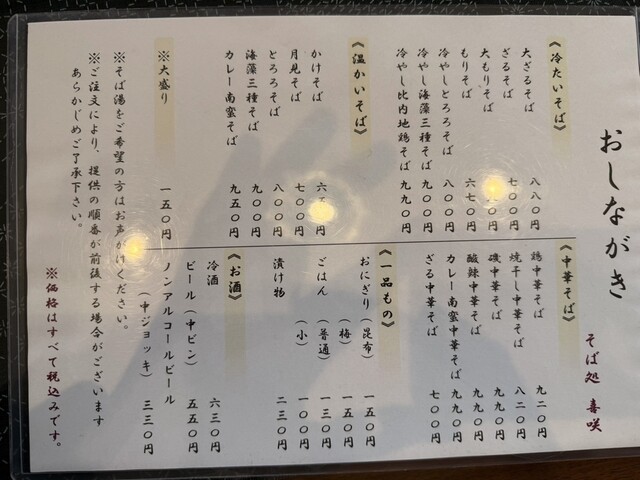 おしながき
そば処 喜咲
《冷たいそば》
大ざるそば 八八〇円
ざるそば 七〇〇円
大もりそば 〇円
もりそば 六七〇円
冷やしとろろそば 八〇〇円
冷やし海藻三種そば 九〇〇円
冷やし比内地鶏そば 九九〇円
《温かいそば》
かけそば 六 円
月見そば 七〇〇円
とろろそば 八〇〇円
海藻三種そば 九〇〇円
カレー南蛮そば 九五〇円
※大盛り 一五〇円
《中華そば》
鶏中華そば 九二〇円
焼干し中華そば 八二〇円
磯中華そば 九九〇円
酸辣中華そば 九九〇円
カレー南蛮中華そば 九九〇円
ざる中華そば 七〇〇円
《一品もの》
おにぎり(昆布) 一五〇円
(梅) 一五〇円
ごはん(普通) 一三〇円
(小) 一〇〇円
漬け物 二三〇円
《お酒》
冷酒 六三〇円
ビール(中ビン) 五五〇円
ノンアルコールビール
(中ジョッキ) 三三〇円
※そば湯をご希望の方はお声がけください。
※ご注文により、提供の順番が前後する場合がございます
あらかじめご了承下さい。
※価格はすべて税込みです。